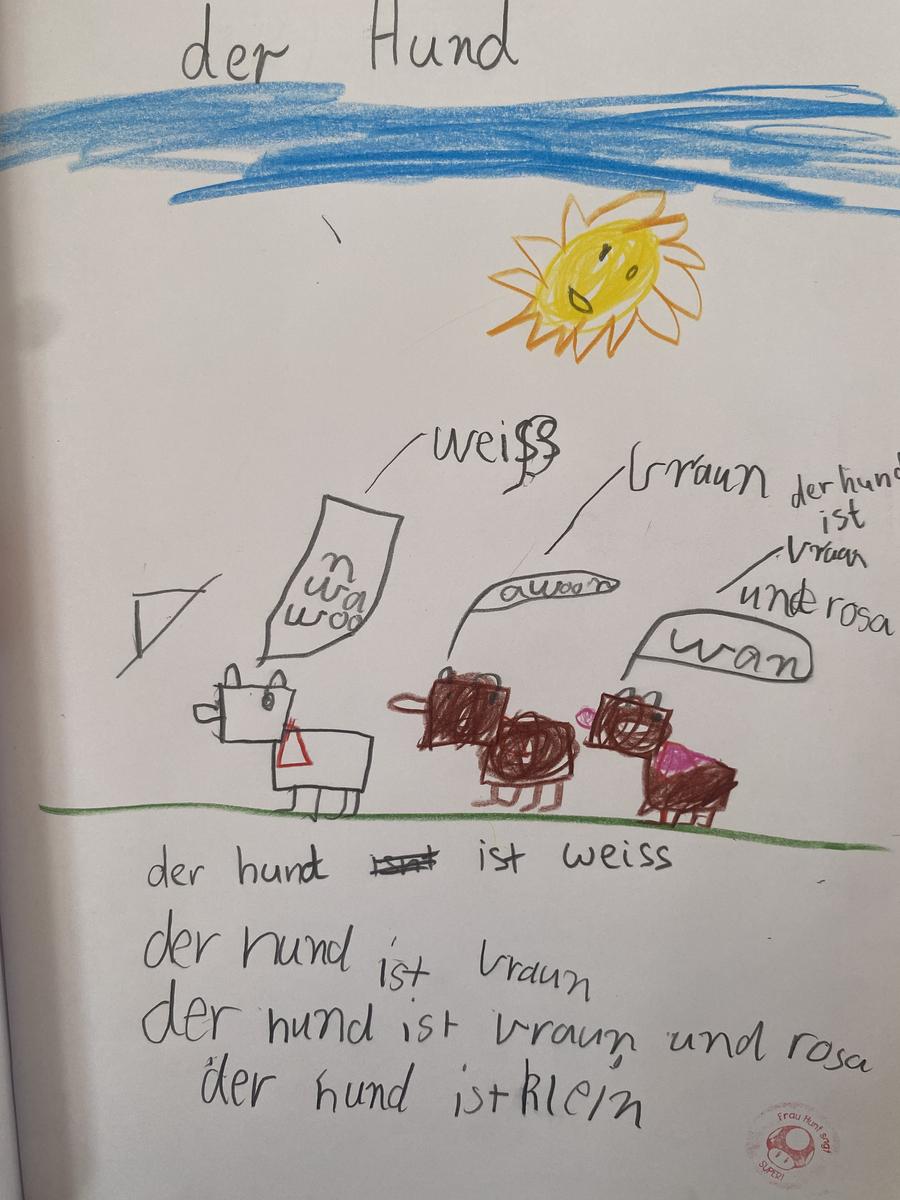 der Hund
weiss
vraun
der hund
ist
vraun
und rosa
n
wa
woo
awoon
wan
der hund ist weiss
der hund ist vraun
der hund ist vraun und rosa
der hund ist klein
Frau Hunt sagt
SUPER!